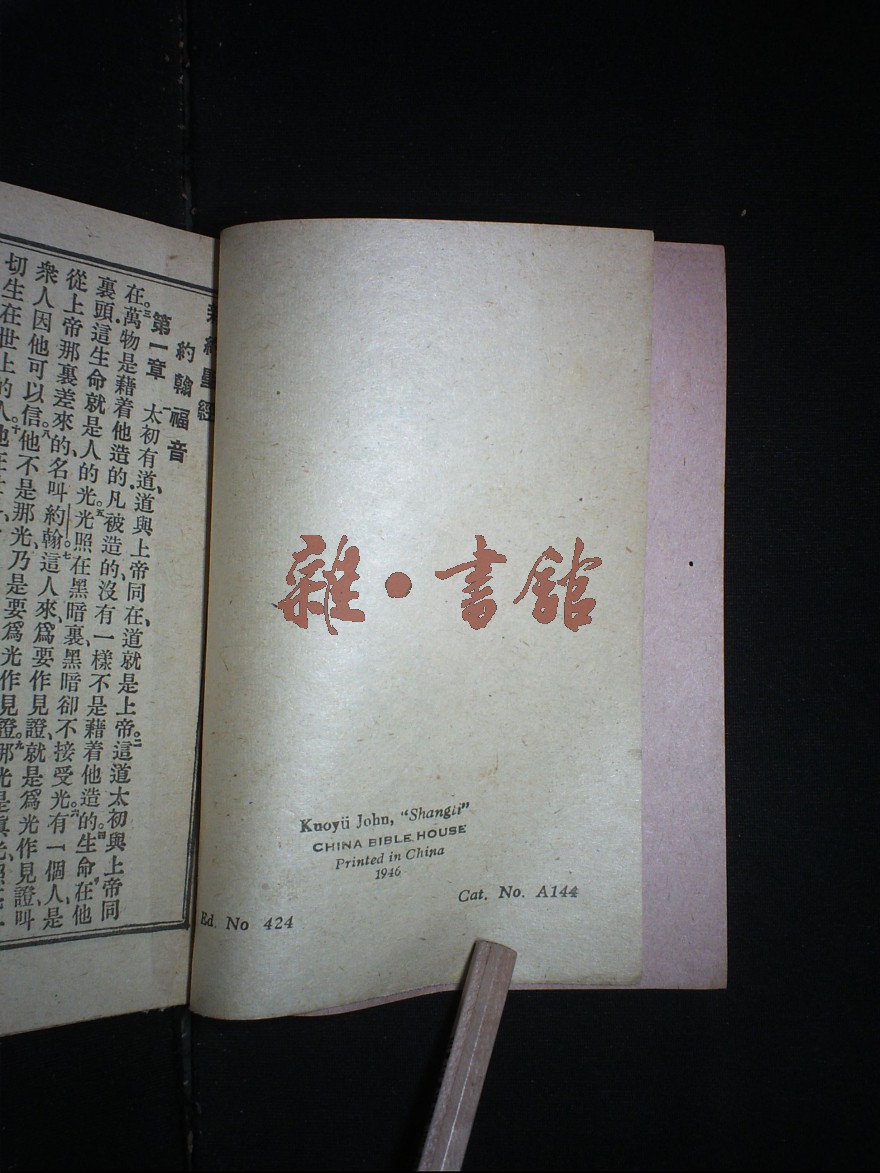 約聖經
約翰福音
第一章 一太初有道、道與上帝同在、道就是上帝。二這道太初與上帝同
在。三萬物是藉着他造的.凡被造的、沒有一樣不是藉着他造的。四生命在他
裏頭.這生命就是人的光。五光照在黑暗裏、黑暗卻不接受光。六有一個人、是
從上帝那裏差來的、名叫約翰。七這人來、爲要作見證、就是爲光作見證、叫
衆人因他可以信。八他不是那光、乃是要爲光作見證。九那光是眞光、照
切生在世上的人。十他在
雜•書館
Kuoyü John, "Shangti"
CHINA BIBLE HOUSE
Printed in China
1946
Cat. No. A144
Ed. No 424